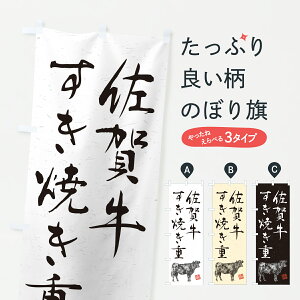 佐賀牛
すき焼き重
たっぷり
良い柄
のぼり旗
やったね
えらべる3タイプ
A
B
C
佐賀牛
すき焼き重
佐賀牛
すき焼き重
佐賀牛
すき焼き重